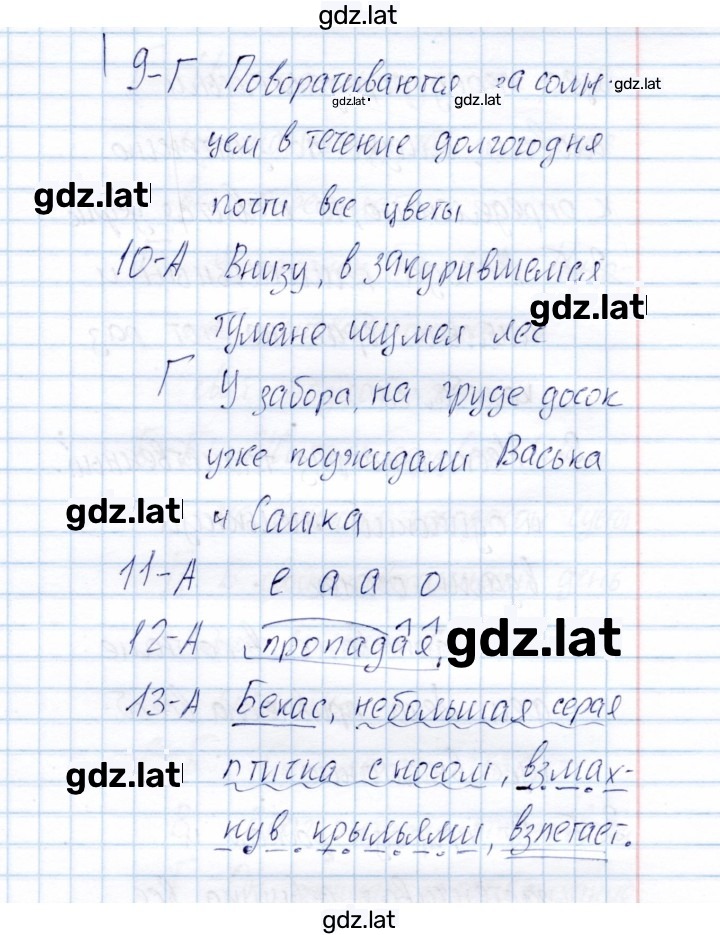 gdz.lat
9-Г Поворачиваются за солн- gdz.lat
gdz.lat gdz.lat
цем в течение долгогодня
gdz.lat почти все цветы
10-А Внизу, в закурившемся
gdz.lat
тумане шумел лес
Г У забора, на груде досок
уже поджидали Васька
gdz.lat и Сашка
11-А е а а о
12-А пропадая, gdz.lat
13-А Бекас, небольшая серая
gdz.lat птичка с носом, взмах-
нув крыльями, взлетает.
gdz.lat